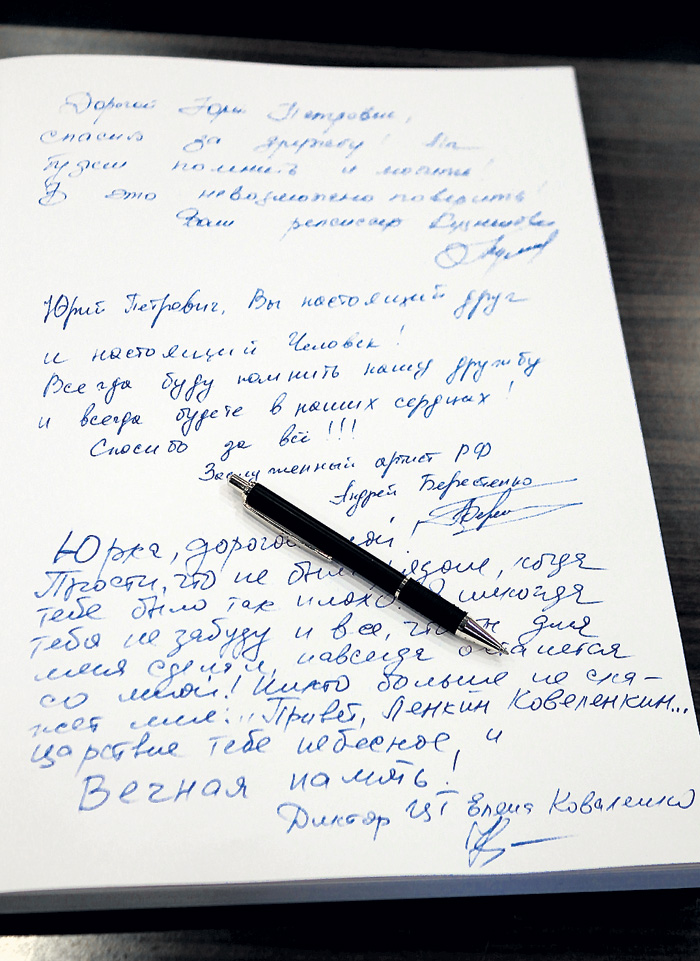 Дорогой Юрий Петрович,
спасибо за дружбу!
будем помнить и
В это невозможно поверить!
Ваш режиссер
Юрий Петрович, Вы настоящий друг
и настоящий Человек!
Всегда буду помнить нашу дружбу
и всегда будете в наших сердцах!
Спасибо за всё!!!
Заслуженный артист РФ
Андрей Берестенко
Юрка, дорогой мой!
Прости, что не была рядом, когда
тебе было так плохо. Я никогда
тебя не забуду и все, что ты для
меня сделал, навсегда останется
со мной! Никто больше не ска-
жет мне... "Привет, Ленкин Коваленкин...
царствие тебе небесное, и
Вечная память!
Диктор ЦТ Елена Коваленко